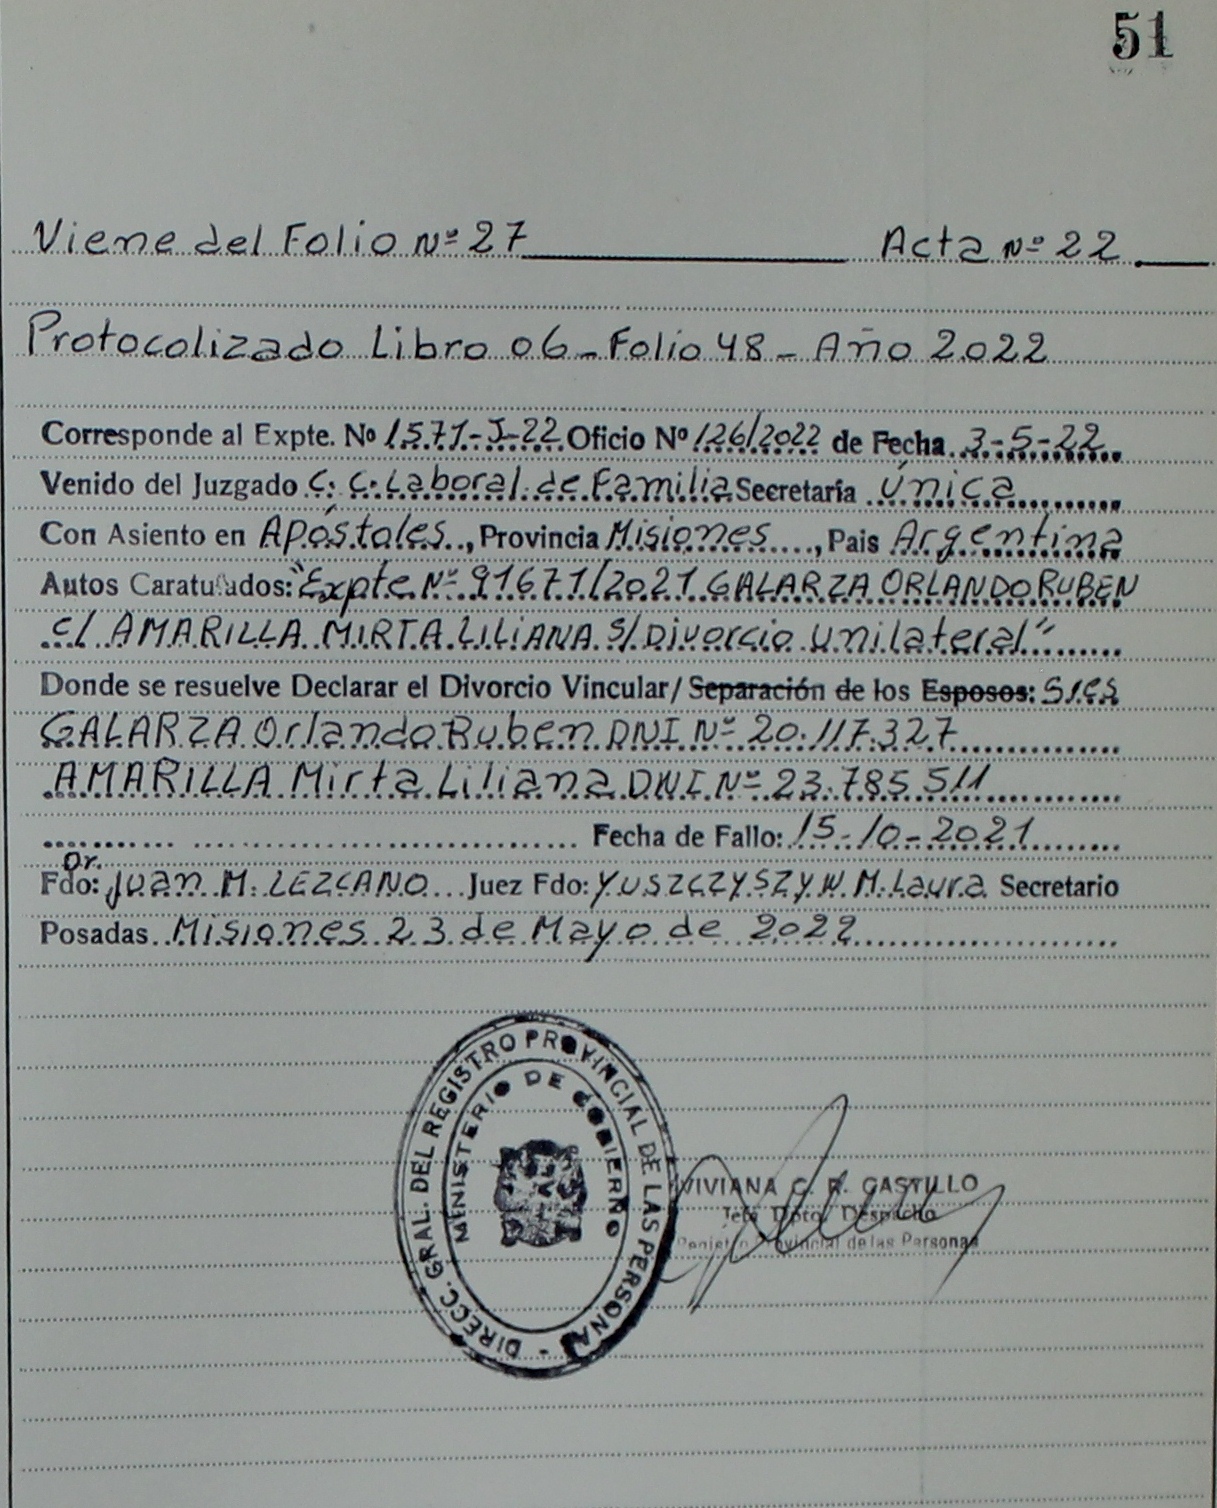 51
Viene del Folio Nº 27 Acta Nº 22
Protocolizado Libro 06 - Folio 48 - Año 2022
Corresponde al Expte. Nº 1571-J-22 Oficio Nº 126/2022 de Fecha 3-5-22
Venido del Juzgado C. C. Laboral de Familia Secretaría Única
Con Asiento en Apóstoles, Provincia Misiones, Pais Argentina
Autos Caratulados: "Expte Nº 91671/2021 GALARZA ORLANDO RUBEN
c/ AMARILLA MIRTA LILIANA S/ Divorcio Unilateral"
Donde se resuelve Declarar el Divorcio Vincular/ Separación de los Esposos: Sres
GALARZA Orlando Ruben DNI Nº 20.117.327
AMARILLA Mirta Liliana DNI Nº 23.785.511
Fecha de Fallo: 15-10-2021
Dr.
Fdo: Juan M. LEZCANO Juez Fdo: YUSZCZYSZYN M. Laura Secretario
Posadas Misiones 23 de Mayo de 2022
DIRECC. GRAL. DEL REGISTRO PROVINCIAL DE LAS PERSONAS -
MINISTERIO DE GOBIERNO
VIVIANA C. R. CASTILLO
Jefa Dpto. Despacho
Registro Provincial de las Personas